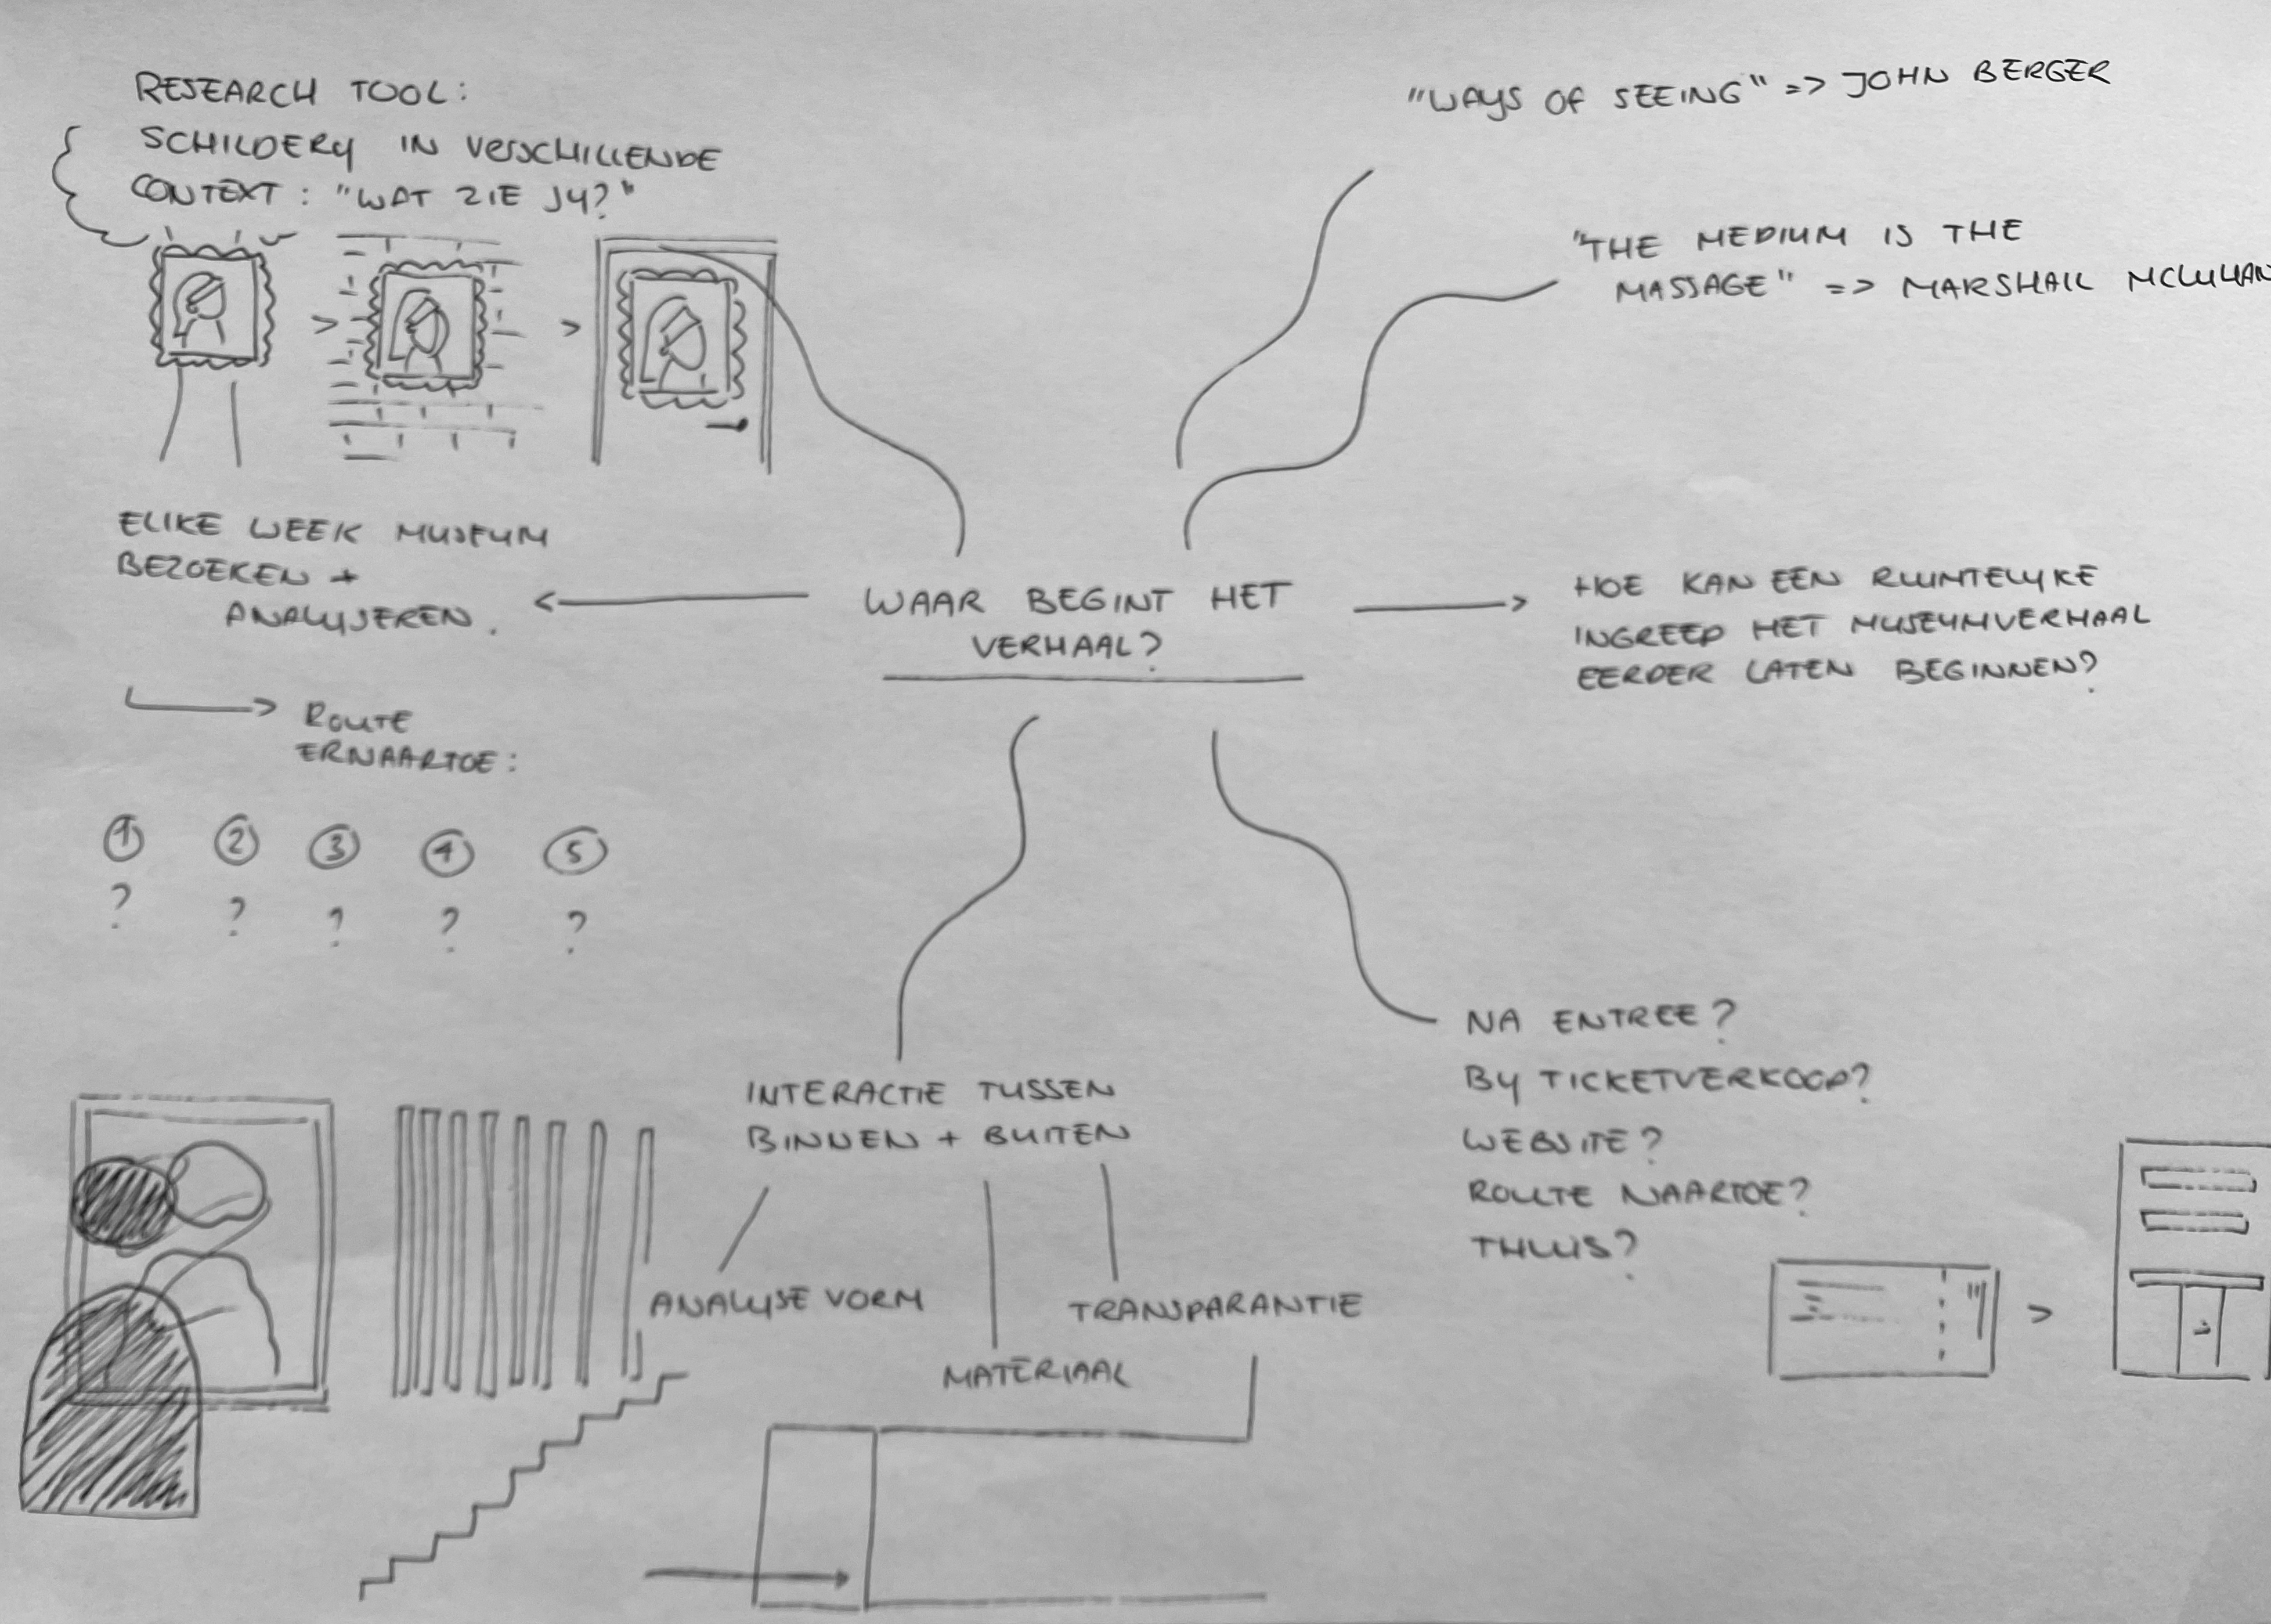 RESEARCH TOOL:
SCHILDERY IN VERSCHILLENDE
CONTEXT: "WAT ZIE JY?"
"WAYS OF SEEING" => JOHN BERGER
"THE MEDIUM IS THE
MASSAGE" => MARSHALL MCLUHAN
ELKE WEEK MUSEUM
BEZOEKEN +
ANALYSEREN.
ROUTE
ERNAARTOE:
1 2 3 4 5
? ? ? ? ?
WAAR BEGINT HET
VERHAAL?
HOE KAN EEN RUIMTELYKE
INGREEP HET MUSEUMVERHAAL
EERDER LATEN BEGINNEN?
INTERACTIE TUSSEN
BINNEN + BUITEN
ANALYSE VORM
MATERIAAL
TRANSPARANTIE
NA ENTREE?
BY TICKETVERKOOP?
WEBSITE?
ROUTE NAARTOE?
THUIS?